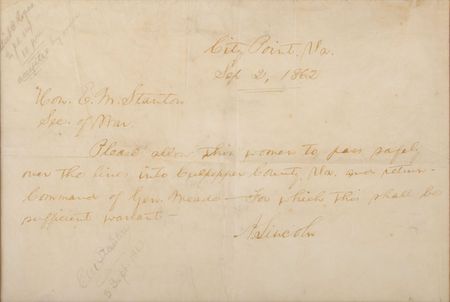 City Point, Va.
Sep 2, 1862
Hon. E. M. Stanton
Sec. of War.
Please allow this women to pass safely
over the lines into Culpepper County Va. and return
Command of Gen. Meade — For which this shall be
sufficient warrant —
A Lincoln
E. M. Stanton
3 Sept